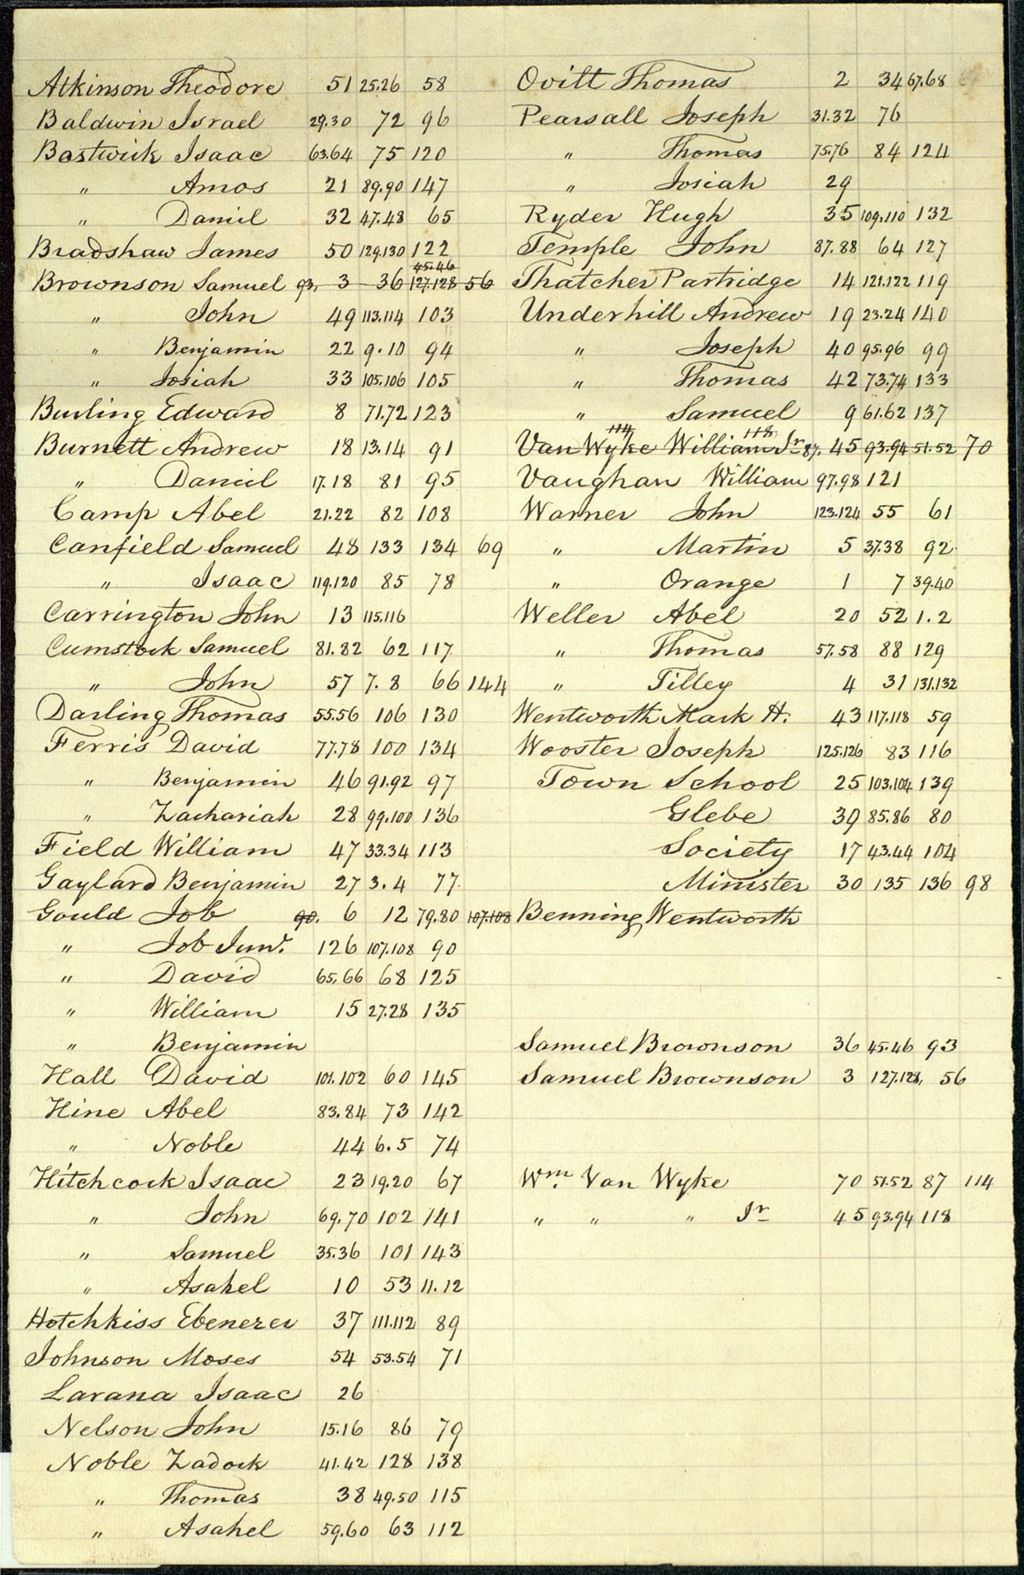 Atkinson Theodore 51 25.26 58
Baldwin Israel 29.30 72 96
Bostwick Isaac 63.64 75 120
" Amos 21 89.90 147
" Daniel 32 47.48 65
Bradshaw James 50 129.130 122
45.46
Brownson Samuel 93. 3 36 127.128 56
" John 49 113.114 103
" Benjamin 22 9.10 94
" Josiah 33 105.106 105
Burling Edward 8 71.72 123
Burnett Andrew 18 13.14 91
" Daniel 17.18 81 95
Camp Abel 21.22 82 108
Canfield Samuel 48 133 134 69
" Isaac 119.120 85 78
Carrington John 13 115.116
Cumstock Samuel 81.82 62 117
" John 57 7.8 66 144
Darling Thomas 55.56 106 130
Ferris David 77.78 100 134
" Benjamin 46 91.92 97
" Zachariah 28 99.100 136
Field William 47 33.34 113
Gaylard Benjamin 27 3.4 77
Gould Job 90. 6 12 79.80 107.108
" Job Junr. 126 107.108 90
" David 65.66 68 125
" William 15 27.28 135
" Benjamin
Hall David 101.102 60 145
Hine Abel 83.84 73 142
" Noble 44 6.5 74
Hitchcock Isaac 23 19.20 67
" John 69.70 102 141
" Samuel 35.36 101 143
" Asahel 10 53 11.12
Hotchkiss Ebenezer 37 111.112 89
Johnson Moses 54 53.54 71
Larana Isaac 26
Nelson John 15.16 86 79
Noble Zadock 41.42 128 138
" Thomas 38 49.50 115
" Asahel 59.60 63 112
Ovitt Thomas 2 34 67.68
Pearsall Joseph 31.32 76
" Thomas 75.76 84 124
" Josiah 29
Ryder Hugh 35 109.110 132
Temple John 87.88 64 127
Thatcher Partridge 14 121.122 119
Underhill Andrew 19 23.24 140
" Joseph 40 95.96 99
" Thomas 42 73.74 133
" Samuel 9 61.62 137
114 118
Van Wyke William Jr 87. 45 93.94 51.52 70
Vaughan William 97.98 121
Warner John 123.124 55 61
" Martin 5 37.38 92
" Orange 1 7 39.40
Weller Abel 20 52 1.2
" Thomas 57.58 88 129
" Tilley 4 31 131.132
Wentworth Mark H. 43 117.118 59
Wooster Joseph 125.126 83 116
Town School 25 103.104 139
Glebe 39 85.86 80
Society 17 43.44 104
Minister 30 135 136 98
Benning Wentworth
Samuel Brownson 36 45.46 93
Samuel Brownson 3 127.128, 56
Wm. Van Wyke 70 51.52 87 114
" " " Jr 45 93.94 118